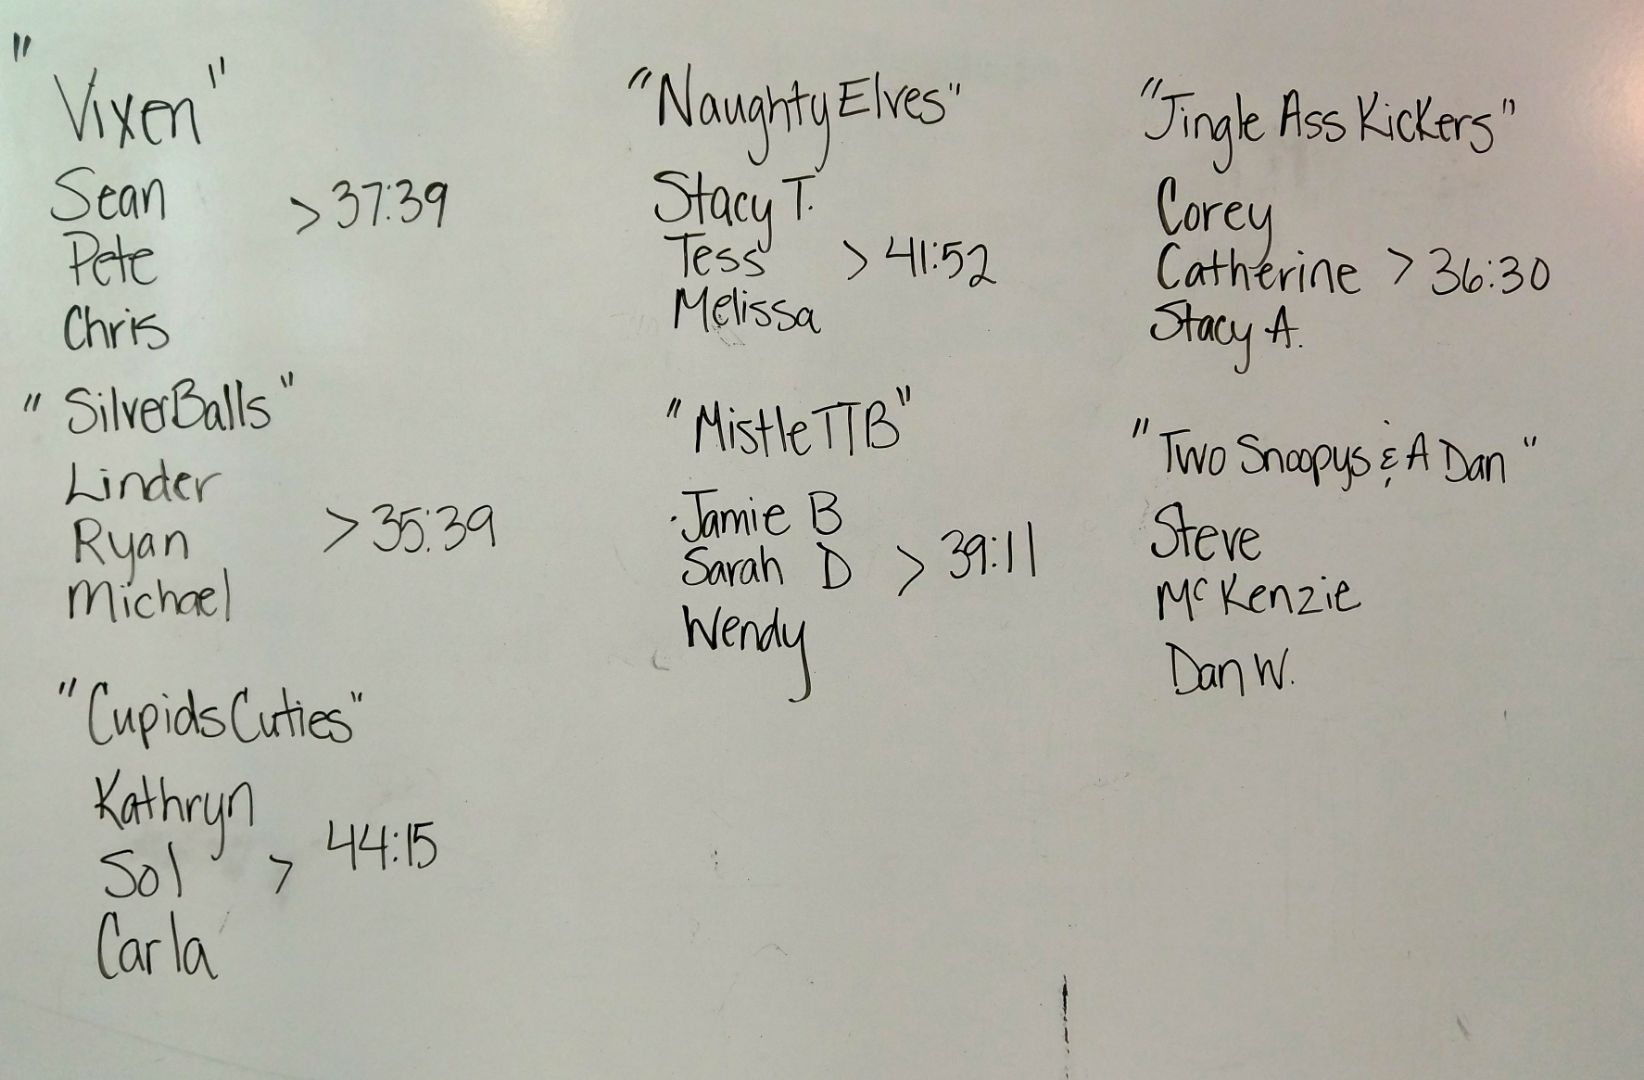 "Vixen"
Sean
> 37:39
Pete
Chris
"SilverBalls"
Linder
Ryan
> 35:39
Michael
"Cupids Cuties"
Kathryn
Sol > 44:15
Carla
"Naughty Elves"
Stacy T.
Tess > 41:52
Melissa
"MistleTTB"
Jamie B
Sarah D > 39:11
Wendy
"Jingle Ass Kickers"
Corey
Catherine > 36:30
Stacy A.
"Two Snoopys & A Dan"
Steve
McKenzie
Dan W.